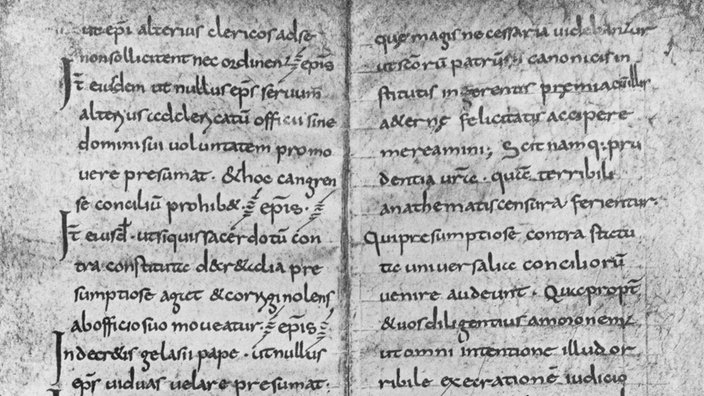 ut ep̄i alterius clericos ad se
non sollicitent nec ordinent ep̄is
It̄ eiusdem ut nullus ep̄s seruum
alterius ad clericatū officii sine
domini sui uoluntatem promo
uere presumat · & hoc cangren
se conciliū prohib& · ep̄is ·
It̄ eiusd̄ · ut siquis sacerdotū con
tra constituta decr&alia pre
sumptiose aget & corrigi nolens
ab officio suo moueatur · ep̄is
In decr&is gelasii pape · ut nullus
ep̄s uiduas uelare presumat ·
quę magis necessaria uidebantur
ut scōrū patrū canonicis in
stitutis ingerentis premia
aeternę felicitatis accipere
mereamini; Scit namq; pru
dentia ur̄a · quam terribili
anathematis censura ferientur ·
Qui presumptiose contra statu
ta uniuersaliū conciliorū
uenire audeunt · Quapropt̄
& uos diligentius
ut omni intentione illud or
ribile execrationē iudicio